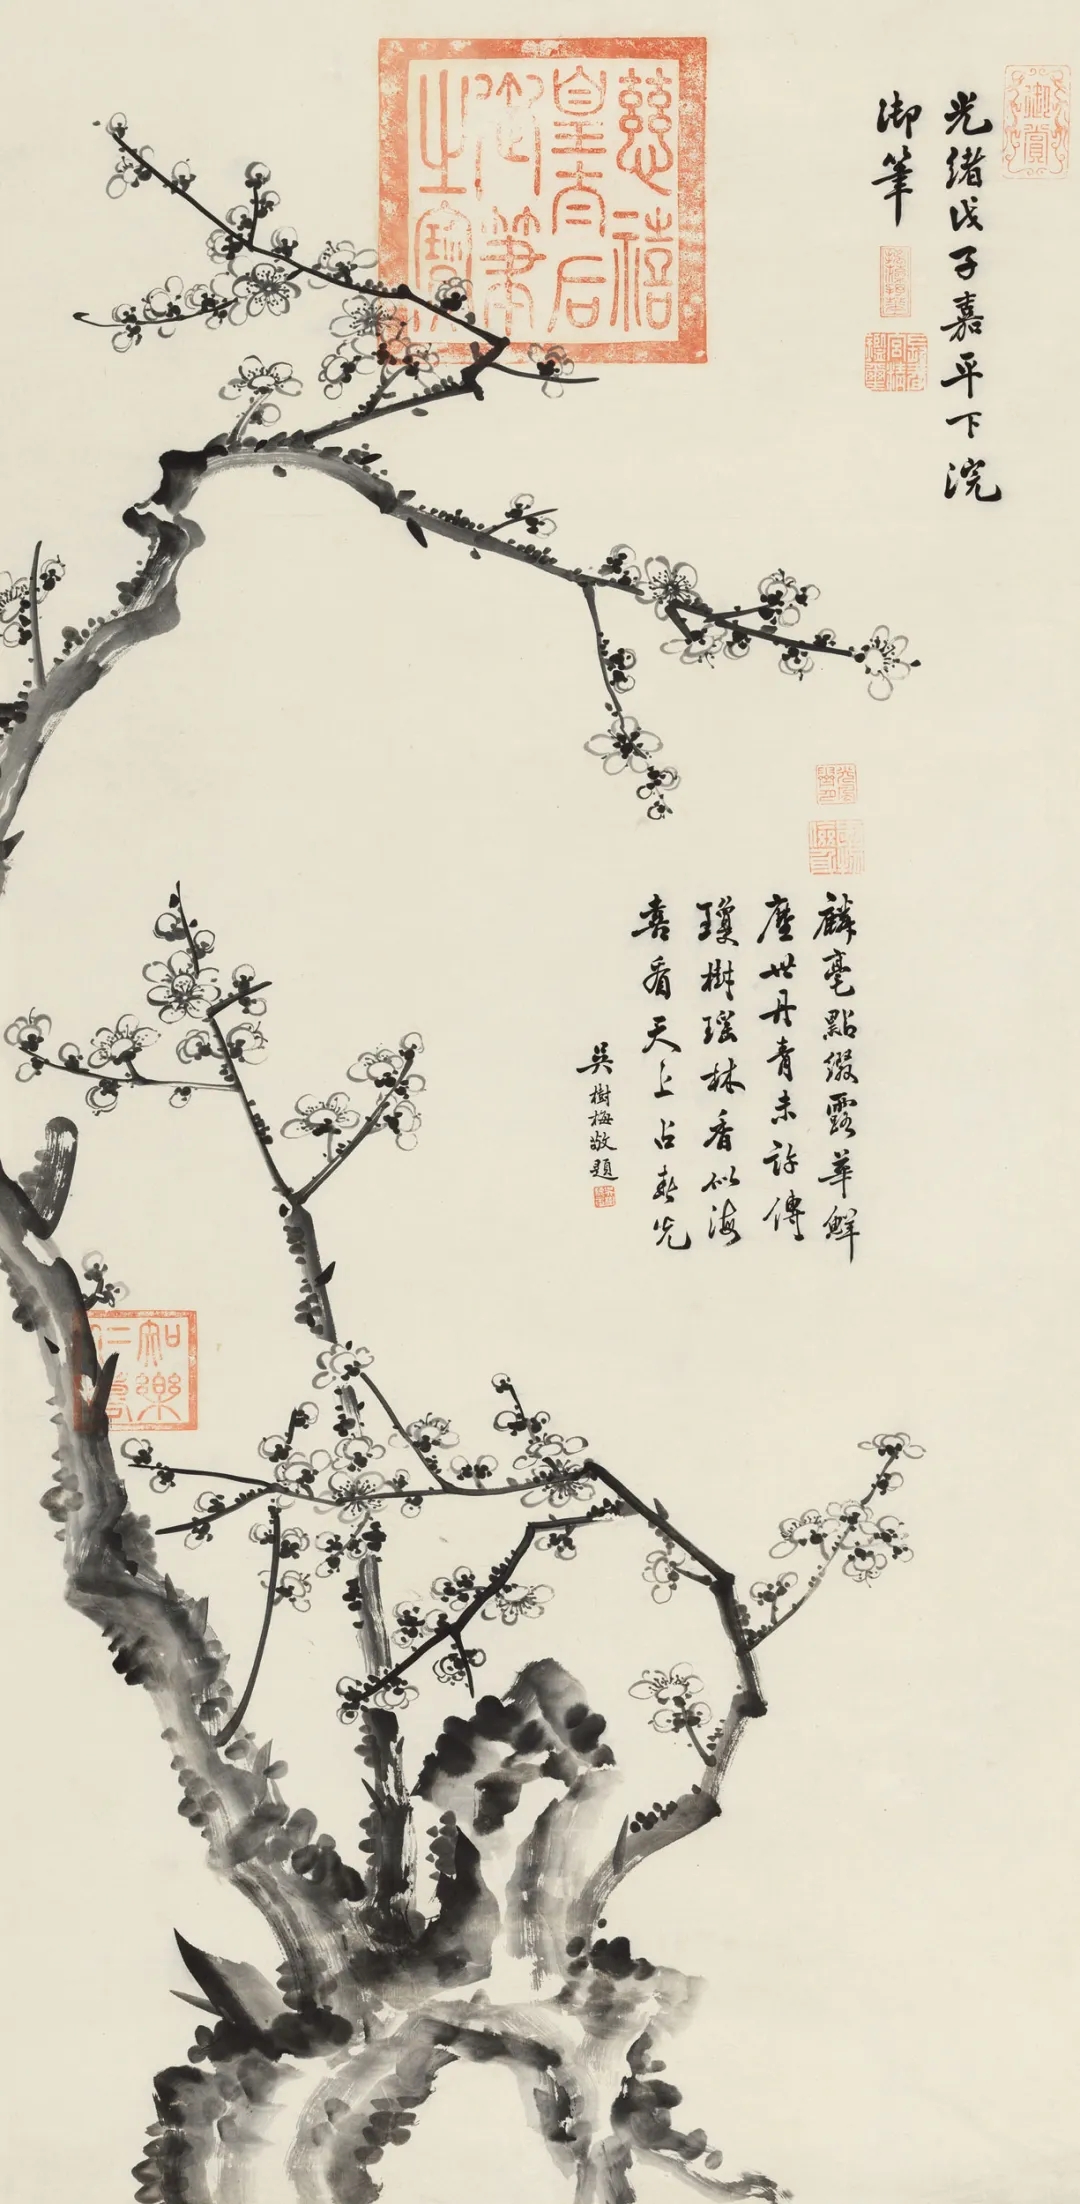 光緒戊子嘉平下浣
御筆
慈禧
皇太后
御筆
之寶
麟毫點綴露華鮮
塵世丹青未許傳
瓊樹瑤林香似海
喜看天上占春先
吳樹梅敬題
知樂
仁壽